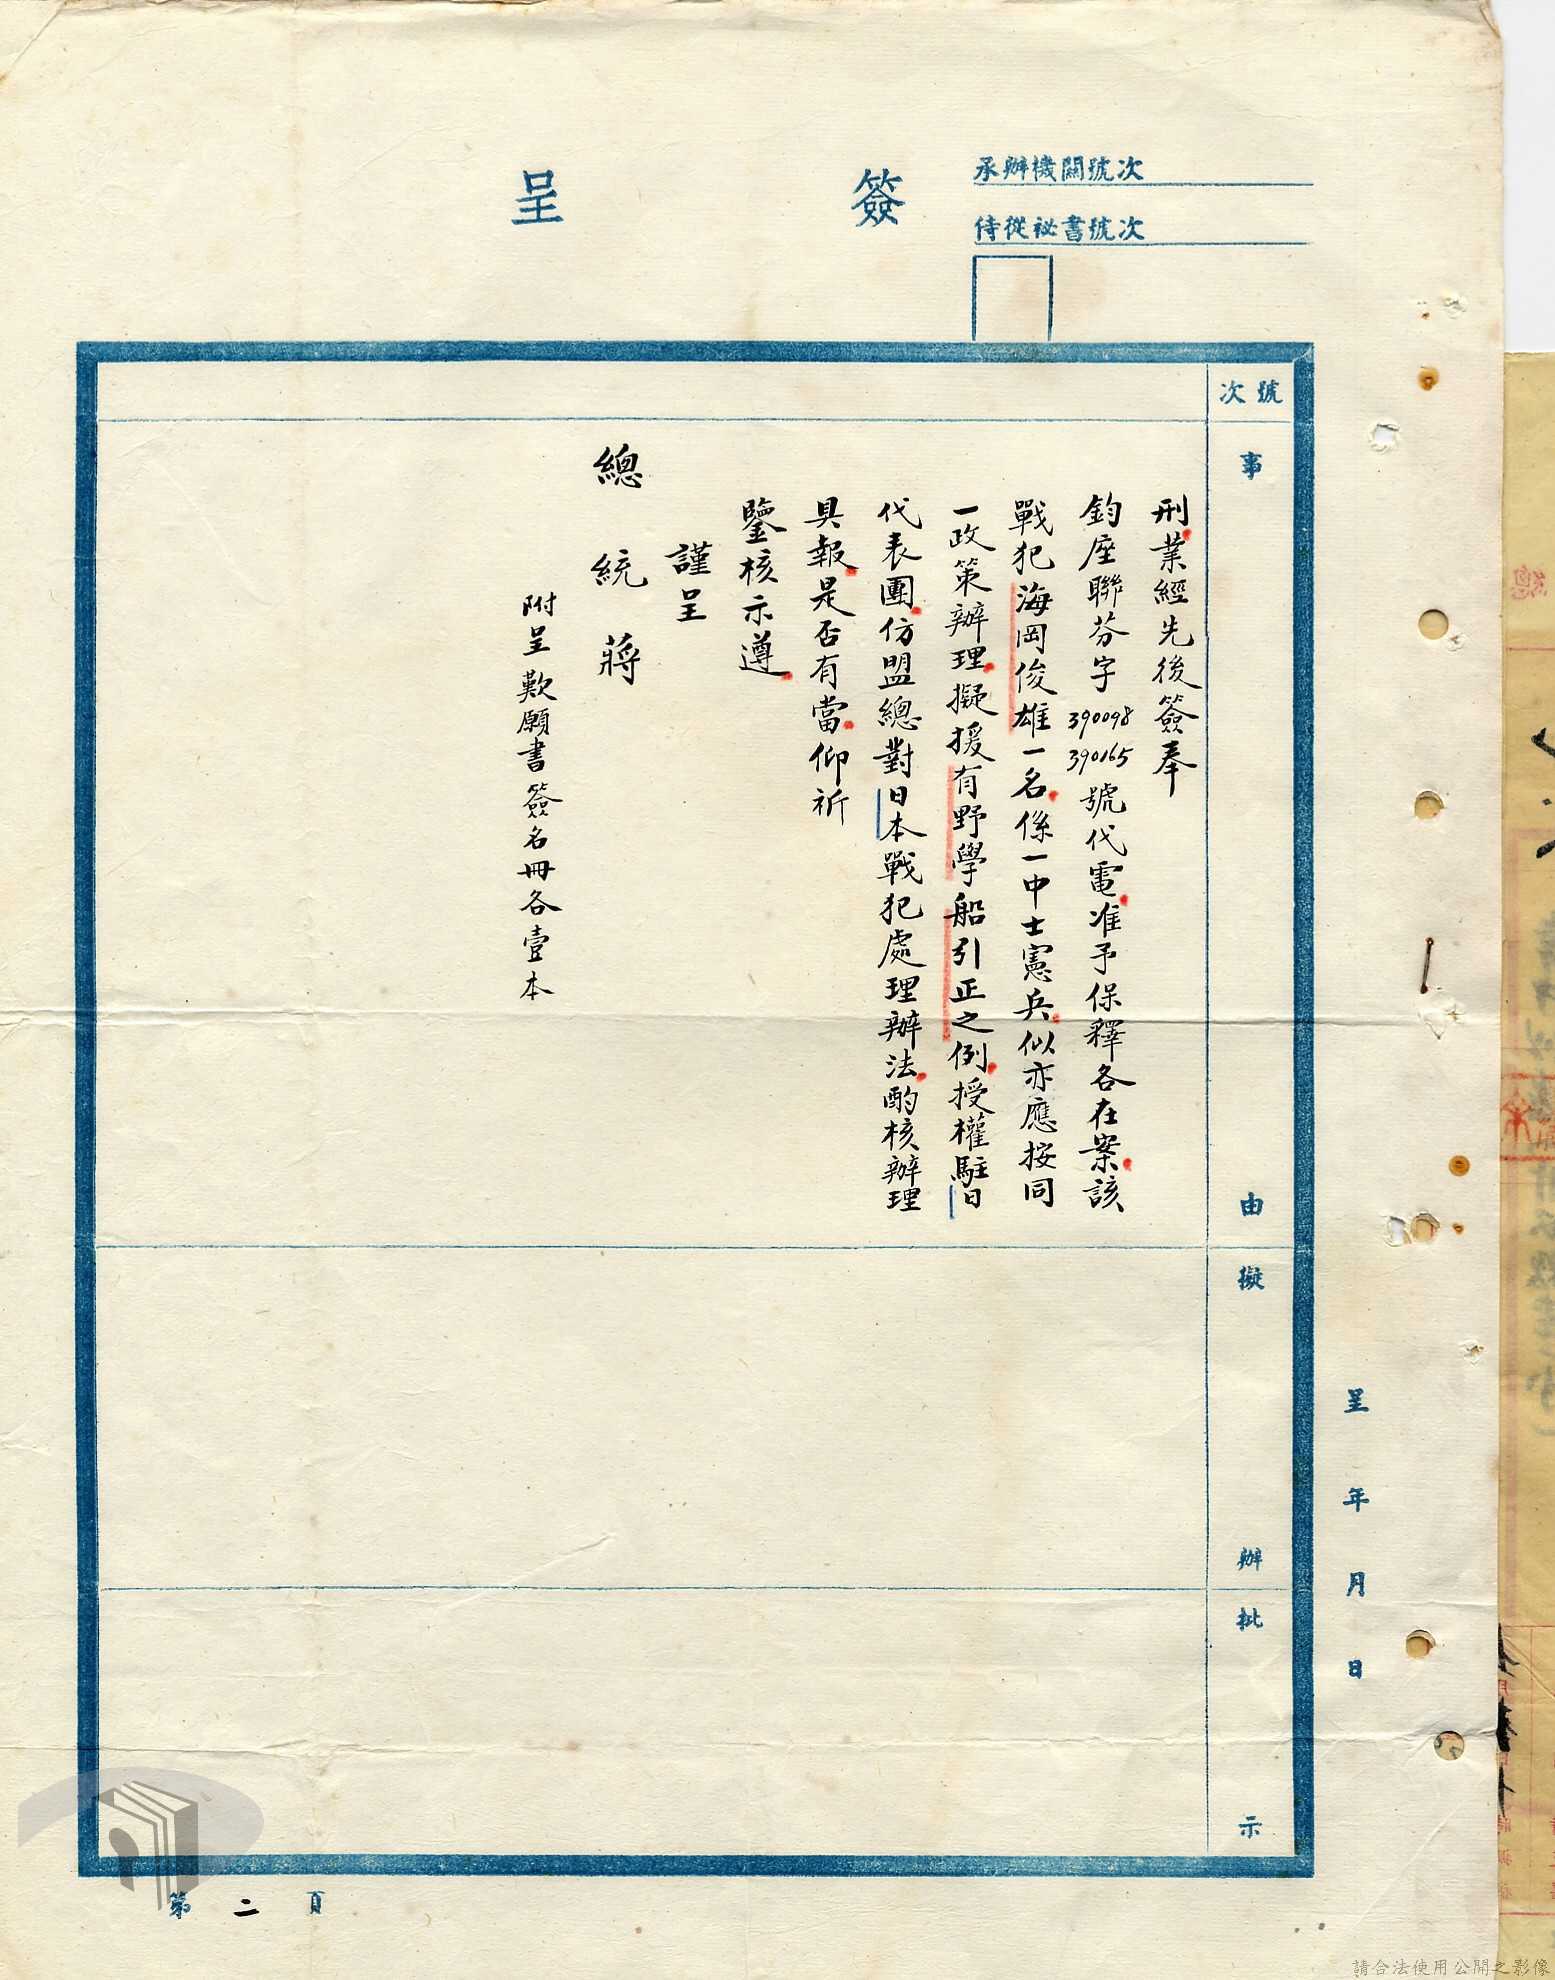 簽呈
承辦機關號次
侍從祕書號次
號次
事由
擬辦
批示
刑業經先後簽奉
鈞座聯芬字390098 390165號代電准予保釋各在案該
戰犯海岡俊雄一名係一中士憲兵似亦應按同
一政策辦理擬援有野學船引正之例授權駐日
代表團仿盟總對日本戰犯處理辦法酌核辦理
具報是否有當仰祈
鑒核示遵
謹呈
總統蔣
附呈歎願書簽名冊各壹本
呈年月日
第二頁
請合法使用公開之影像